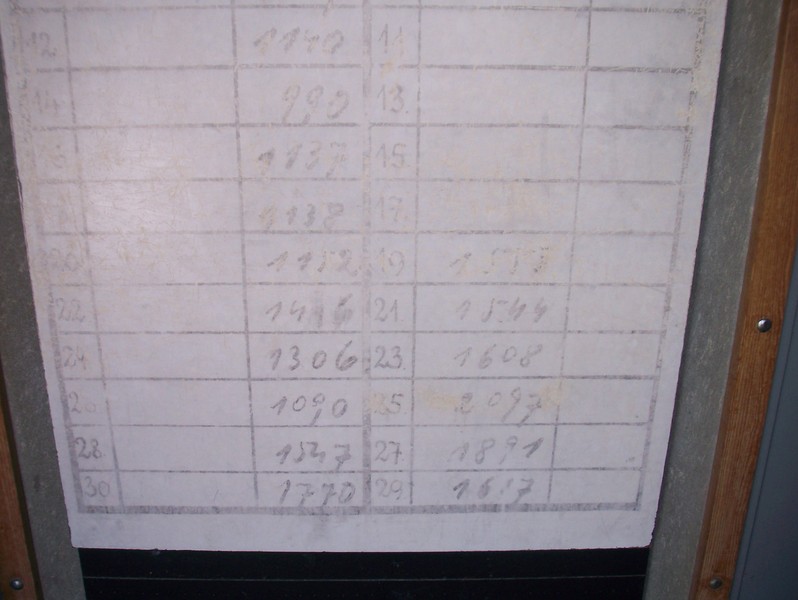 12 1140 11
14 990 13.
1137 15
1138 17
20 1152 19
22 21 1544
24 1306 23. 1608
1090 25 2097
28. 1547 27 1891
30 1770 29.